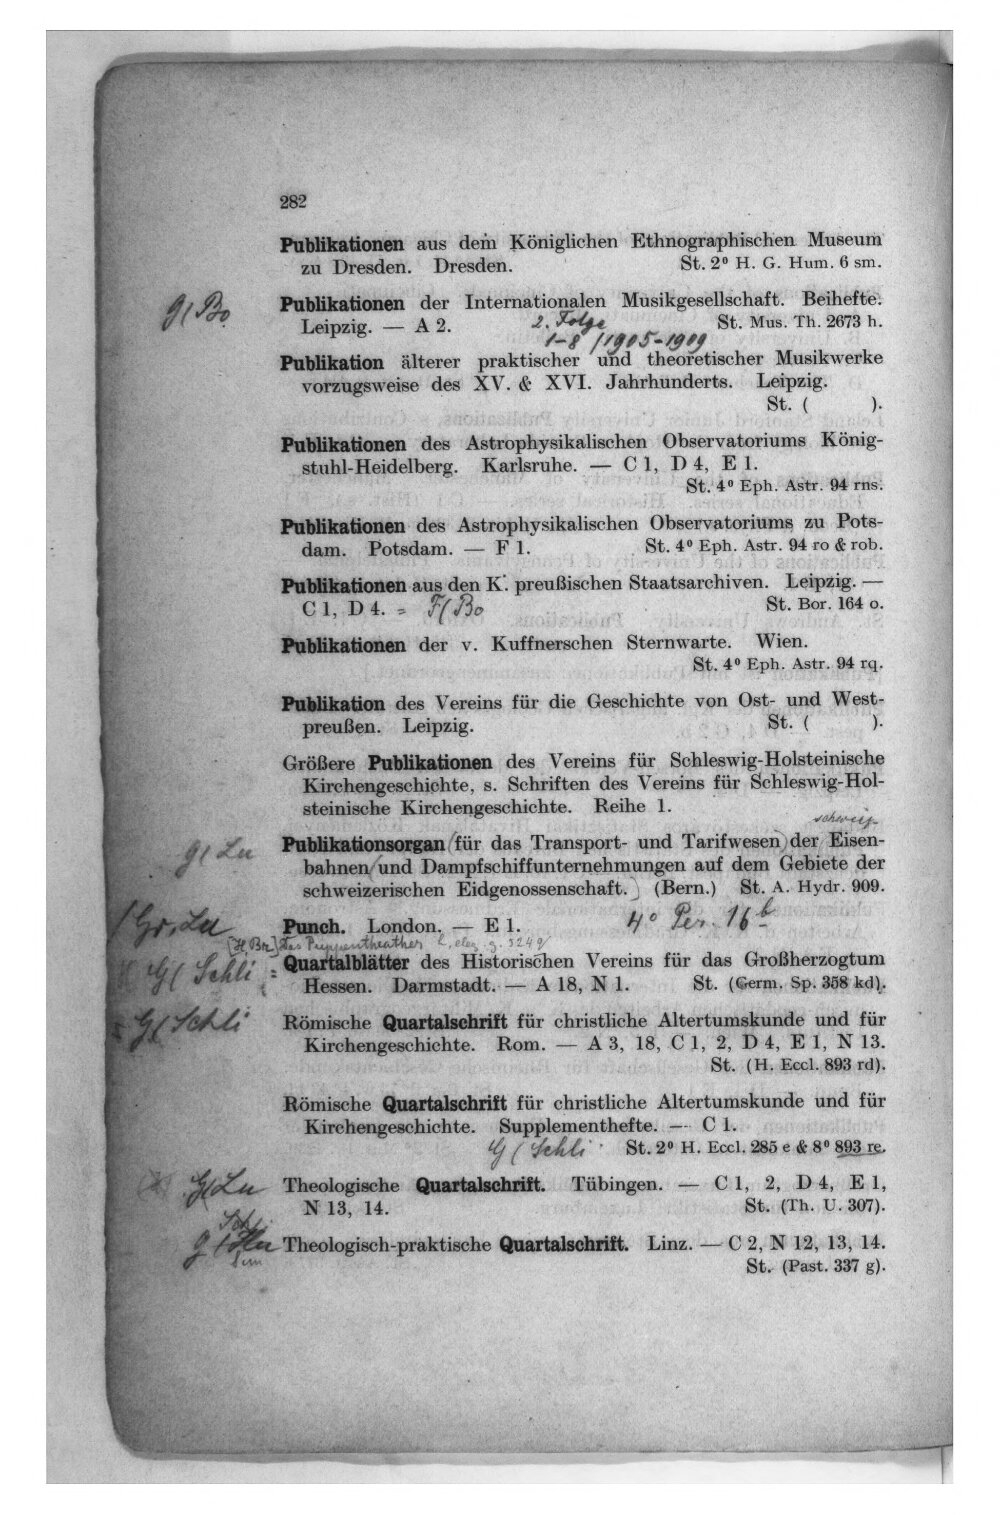 282
Publikationen aus dem Königlichen Ethnographischen Museum
zu Dresden. Dresden. St. 2⁰ H. G. Hum. 6 sm.
g/ Bo
Publikationen der Internationalen Musikgesellschaft. Beihefte.
Leipzig. — A 2. 2. Folge St. Mus. Th. 2673 h.
1-8 /1905-1909
Publikation älterer praktischer und theoretischer Musikwerke
vorzugsweise des XV. & XVI. Jahrhunderts. Leipzig.
St. ( ).
Publikationen des Astrophysikalischen Observatoriums König-
stuhl-Heidelberg. Karlsruhe. — C 1, D 4, E 1.
St. 4⁰ Eph. Astr. 94 rns.
Publikationen des Astrophysikalischen Observatoriums zu Pots-
dam. Potsdam. — F 1. St. 4⁰ Eph. Astr. 94 ro & rob.
Publikationen aus den K. preußischen Staatsarchiven. Leipzig. —
C 1, D 4. = F/ Bo St. Bor. 164 o.
Publikationen der v. Kuffnerschen Sternwarte. Wien.
St. 4⁰ Eph. Astr. 94 rq.
Publikation des Vereins für die Geschichte von Ost- und West-
preußen. Leipzig. St. ( ).
Größere Publikationen des Vereins für Schleswig-Holsteinische
Kirchengeschichte, s. Schriften des Vereins für Schleswig-Hol-
steinische Kirchengeschichte. Reihe 1.
schweiz.
g/ Lu Publikationsorgan (für das Transport- und Tarifwesen) der Eisen-
bahnen (und Dampfschiffunternehmungen auf dem Gebiete der
schweizerischen Eidgenossenschaft.) (Bern.) St. A. Hydr. 909.
/ Gr. Lu Punch. London. — E 1. 4⁰ Per. 16 b
Das Puppentheather
G/ Schli = Quartalblätter des Historischen Vereins für das Großherzogtum
Hessen. Darmstadt. — A 18, N 1. St. (Germ. Sp. 358 kd).
G/ Schli Römische Quartalschrift für christliche Altertumskunde und für
Kirchengeschichte. Rom. — A 3, 18, C 1, 2, D 4, E 1, N 13.
St. (H. Eccl. 893 rd).
Römische Quartalschrift für christliche Altertumskunde und für
Kirchengeschichte. Supplementhefte. — C 1.
G/ Schli St. 2⁰ H. Eccl. 285 e & 8⁰ 893 re.
G/ Lu Theologische Quartalschrift. Tübingen. — C 1, 2, D 4, E 1,
N 13, 14. St. (Th. U. 307).
Theologisch-praktische Quartalschrift. Linz. — C 2, N 12, 13, 14.
St. (Past. 337 g).